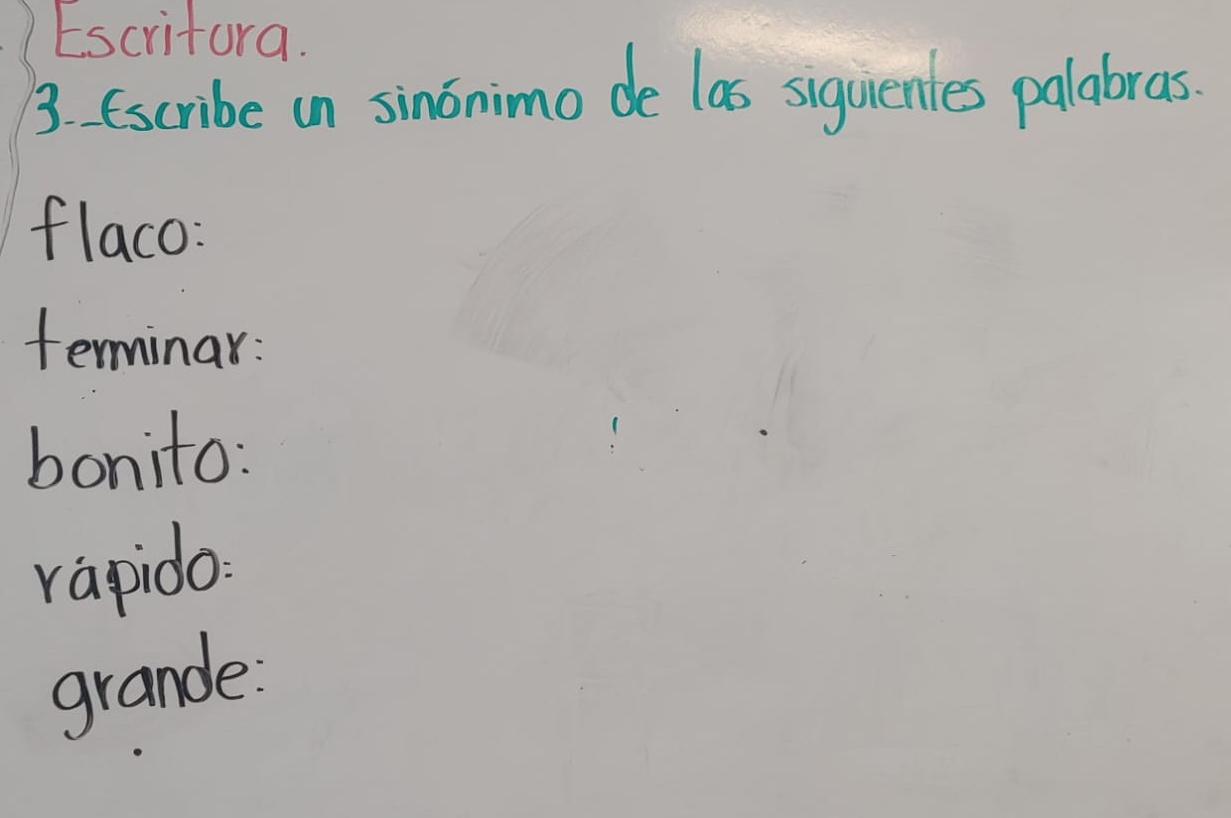 Escritura.
3.-Escribe un sinónimo de las siguientes palabras.
flaco:
terminar:
bonito:
rápido:
grande: